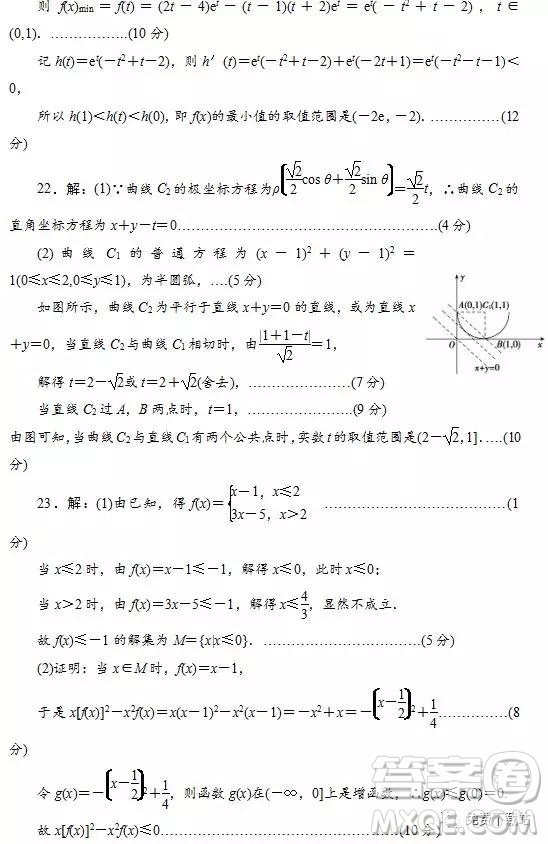 则 f(x)min＝f(t)＝(2t－4)eᵗ－(t－1)(t＋2)eᵗ＝eᵗ(－t²＋t－2)，t∈
(0,1)．………………(10 分)
记 h(t)＝eᵗ(－t²＋t－2)，则 h′(t)＝eᵗ(－t²＋t－2)＋eᵗ(－2t＋1)＝eᵗ(－t²－t－1)＜
0，
所以 h(1)＜h(t)＜h(0)，即 f(x)的最小值的取值范围是(－2e，－2)．……………(12
分)
22．解：(1)∵曲线 C₂的极坐标方程为ρ(√2/2 cos θ＋√2/2 sin θ)＝√2/2 t，∴曲线 C₂的
直角坐标方程为 x＋y－t＝0……………………………………………(4 分)
(2)曲线 C₁的普通方程为(x－1)²＋(y－1)²＝
1(0≤x≤2,0≤y≤1)，为半圆弧，….(5 分)
如图所示，曲线 C₂为平行于直线 x＋y＝0 的直线，或为直线 x
＋y＝0，当直线 C₂与曲线 C₁相切时，由|1＋1－t|/√2＝1，
解得 t＝2－√2或 t＝2＋√2(舍去)，…………………(7 分)
当直线 C₂过 A，B 两点时，t＝1，…………………(9 分)
y
A(0,1)C₁(1,1)
O
B(1,0)
x
x+y=0
由图可知，当曲线 C₂与直线C₁有两个公共点时，实数 t 的取值范围是(2－√2，1]．….(10
分)
23．解：(1)由已知，得 f(x)＝{x－1，x≤2
3x－5，x＞2 ………………………………(1
分)
当 x≤2 时，由 f(x)＝x－1≤－1，解得 x≤0，此时 x≤0；
当 x＞2 时，由 f(x)＝3x－5≤－1，解得 x≤4/3，显然不成立．
故 f(x)≤－1 的解集为 M＝{x|x≤0}．…………………………(5 分)
(2)证明：当 x∈M 时，f(x)＝x－1，
于是 x[f(x)]²－x²f(x)＝x(x－1)²－x²(x－1)＝－x²＋x＝－(x－1/2)²＋1/4……………(8
分)
令 g(x)＝－(x－1/2)²＋1/4，则函数 g(x)在(－∞，0]上是增函数，∴g(x)≤g(0)＝0
故 x[f(x)]²－x²f(x)≤0………………………………………(10 分)
答案圈